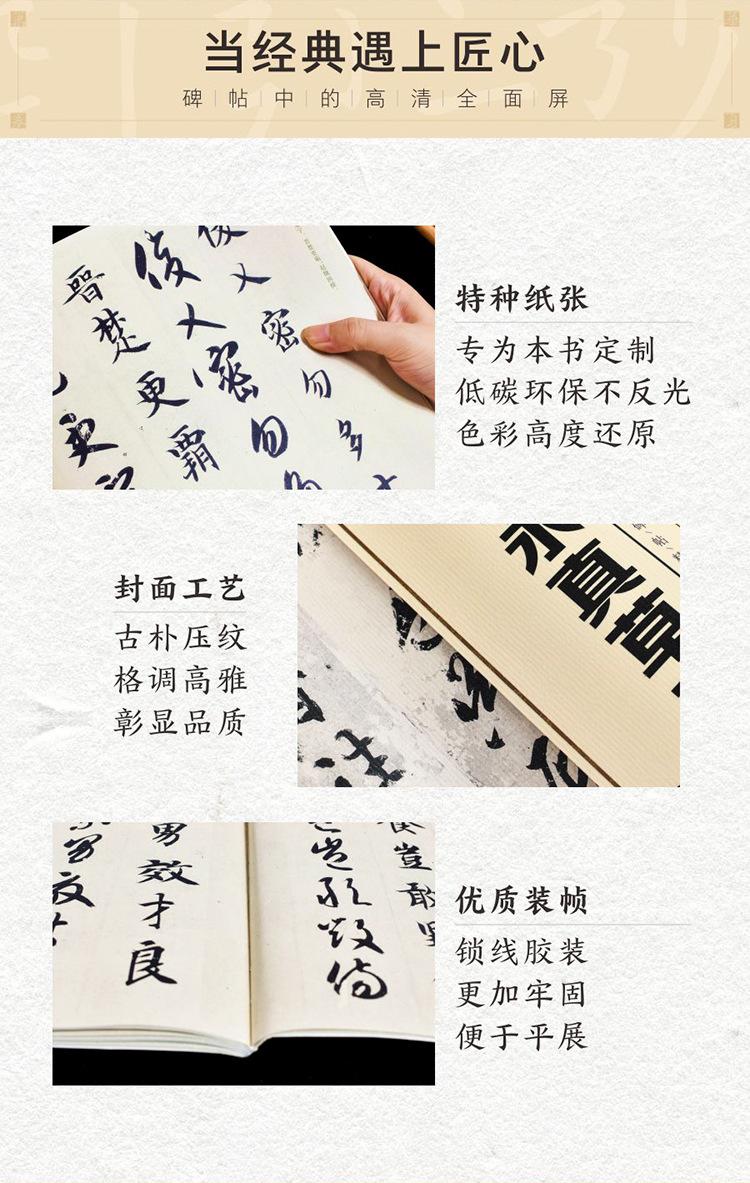 当经典遇上匠心
碑帖中的高清全面屏
特种纸张
专为本书定制
低碳环保不反光
色彩高度还原
俊
俊
乂
乂
密
密
勿
勿
多
晉
楚
更
更
霸
封面工艺
古朴压纹
格调高雅
彰显品质
真草
法
优质装帧
锁线胶装
更加牢固
便于平展
男
效
才
良
豈
敢
毀
傷